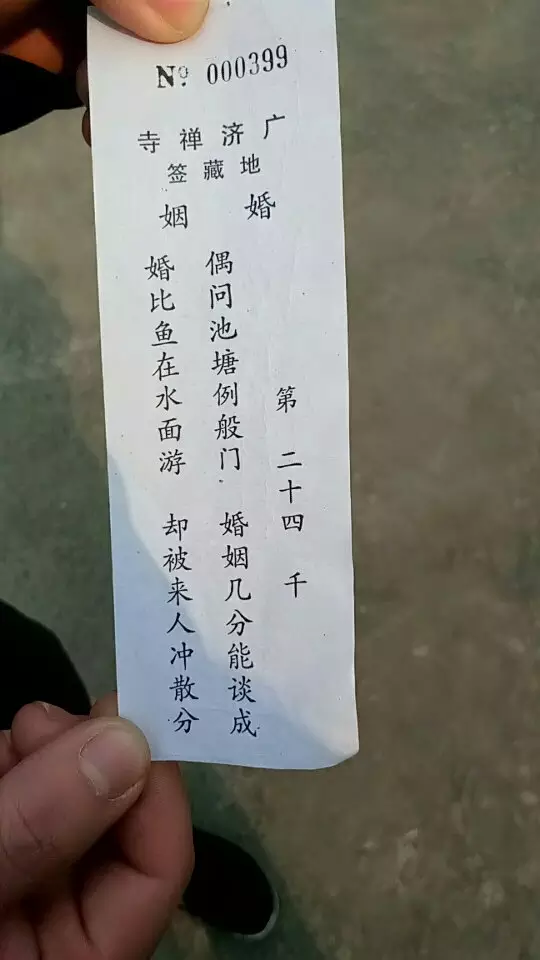 No 000399
广济禅寺
地藏签
婚姻
第二十四千
偶问池塘例般门 婚姻几分能谈成
婚比鱼在水面游 却被来人冲散分